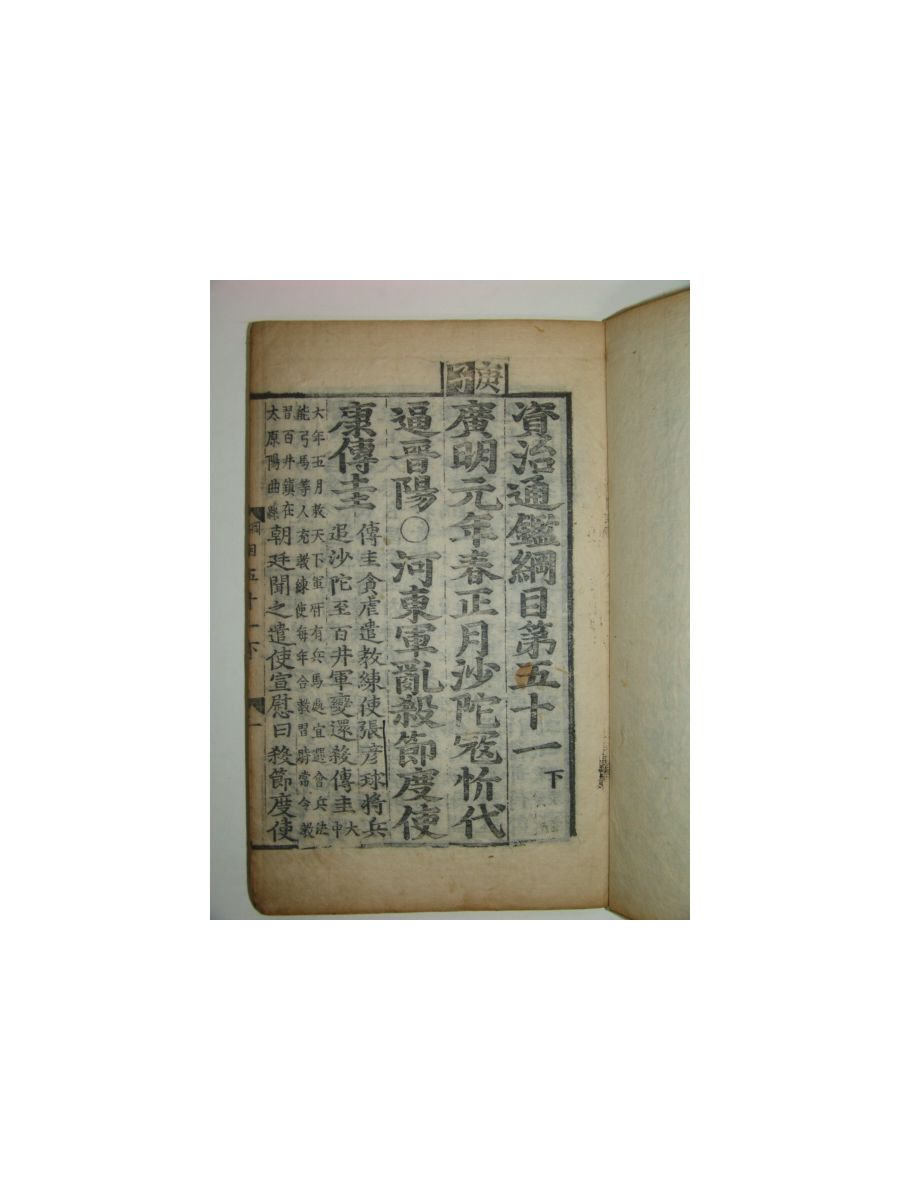 資治通鑑綱目第五十一 下
庚子
廣明元年春正月沙陀寇忻代
逼晉陽〇河東軍亂殺節度使
康傳圭
傳圭貪虐遣教練使張彥球將兵
追沙陀至百井軍變還殺傳圭
大
中
大年五月敕天下軍府有兵馬處宜選會兵法
能弓馬等人充教練使每年合教習時常令教
習百井鎮在
太原陽曲縣
朝廷聞之遣使宣慰曰殺節度使
綱目五十一下 一